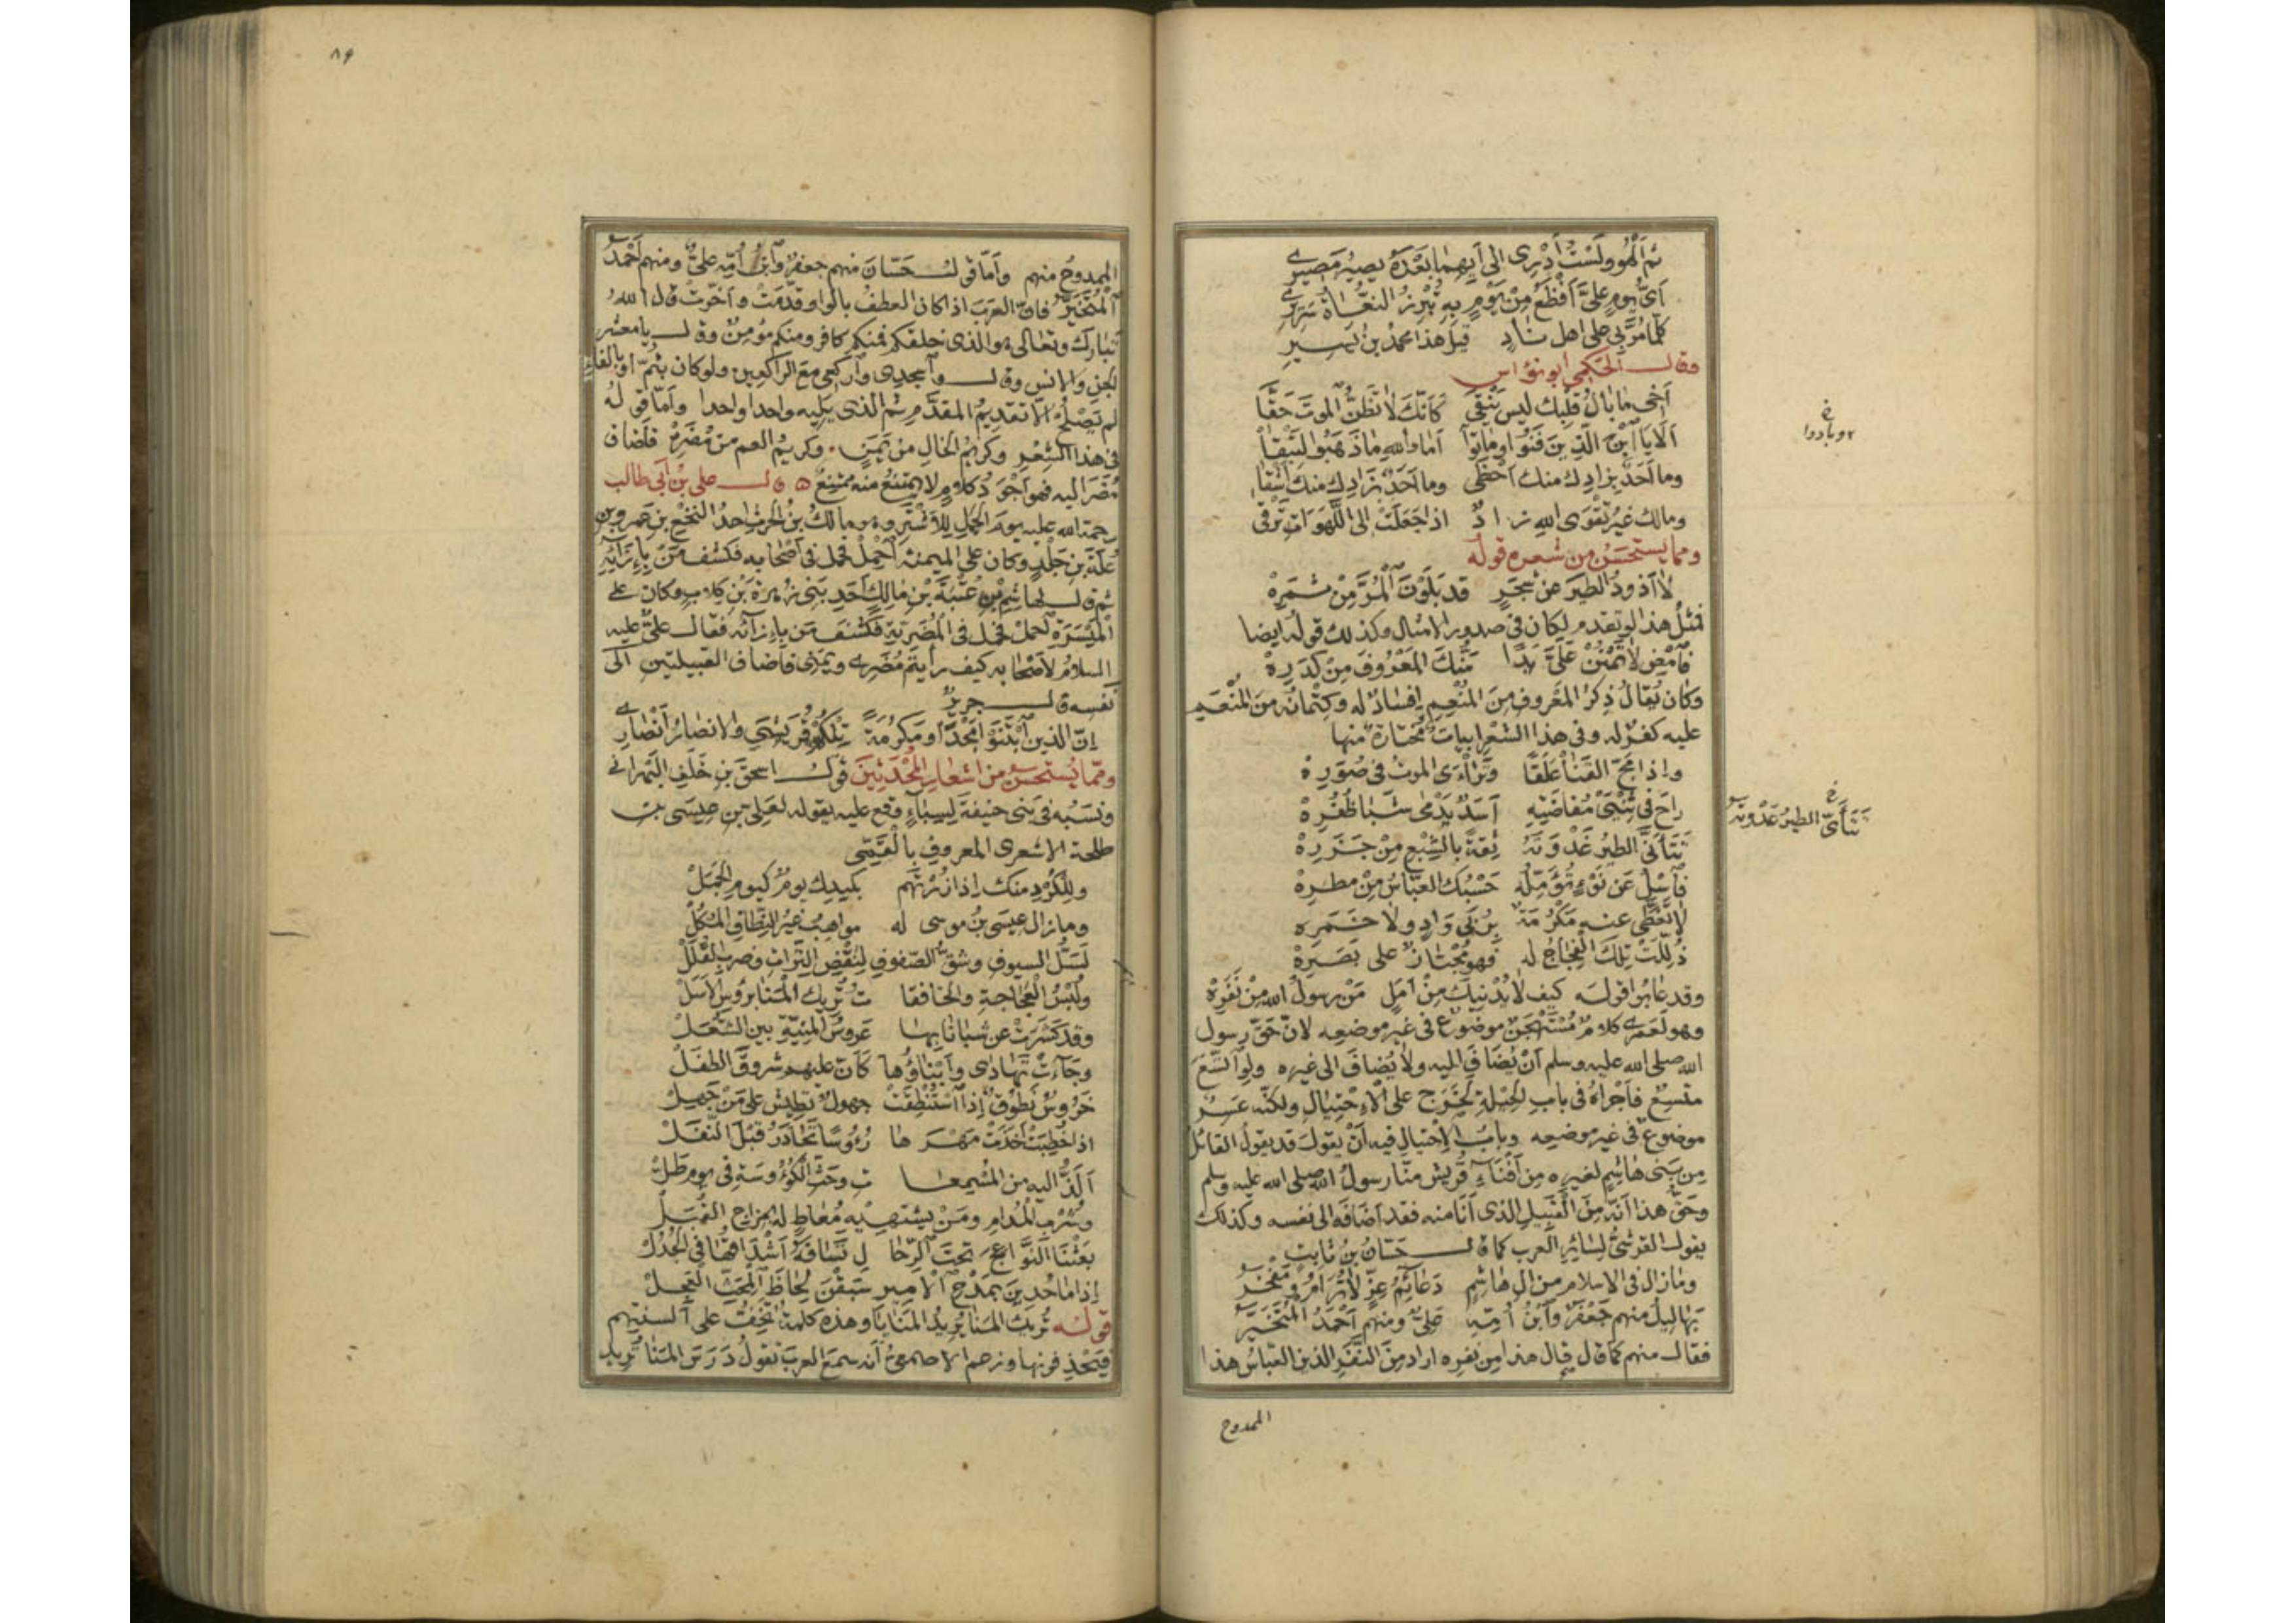 ثم اَلْهُو ولَسْتُ اَدْرى الى اَيهما بَعْدَهُ يصيرُ مَصيرى
اَىُّ يومٍ علىَّ اَفْظَعُ مِنْ يَوْمٍ بهِ تُبْرِزُ النعُاةُ سَريرى
كلّما مُرَّ بى على اهل نادٍ قيل هذا محمدُ بن يسيرِ
وقال الحَكَمى ابو نؤاس
اَخى ما بالُ قلبِك ليس يَنْقى كاَنّكَ لا تظنُّ الموتَ حَقَّا
اَلا يا ابْنَ الّذينَ فَنُوا وماتوا اَما والله ما ذهَبُوا لِتَبْقا
وما اَحَدٌ بزادك منك اَحْظى وما اَحَدٌ بزادك منك اَشْقا
ومالك غيرُ تقْوى الله زاد اذا جَعَلَتْ الى اللَّهَوات تَرْقى
ومما يستحسَنُ من شعره قوله
لا اَذودُ الطيرَ عن شجَرٍ قد بَلَوْتُ الْمُرَّ مِنْ ثمَرِهْ
فمثلُ هذا لو تقدم لكان فى صدور الامثال وكذلك قوله ايضا
فاَمْضِ لا تَمْنُنْ عَلَىَّ يَدًا مَنُّكَ المَعْرُوفَ مِنْ كَدَرِهْ
وكان يُقالُ ذِكرُ المَعْروفِ مِنَ المُنْعِمِ اِفسادٌ له وكِتْمانُه مِنَ المُنْعَمِ
عليه كفرٌ له وفى هذا الشعر ابيات مختارة منها
واذا مَجَّ القَنا عَلَقًا وتَراءَى الموتُ فى صُوَرِهْ
راحَ فى ثِنْيَىْ مُفاضَتِهِ اَسَدٌ يَدْمى شَبا ظُفُرِهْ
تَتَأَنَّى الطيرُ غَدْوَتَهُ ثِقَةً بالشِبْعِ مِنْ جَزَرِهْ
فاَسْلُ عَن نَوْءٍ تُؤَمّلُه حَسْبُك العبّاسُ مِنْ مطرِهْ
لا تَغَطَّى عنه مَكْرُمَةٌ بِرُبَى وَادٍ ولا خَمَره
ذُلِّلَتْ تِلكَ الفِجاجُ له فهو مُجْتازٌ على بَصَرِهْ
وقد عابُوا قولَه كيف لا يُدْنيكَ مِنْ اَمَلٍ مَنْ رسولُ الله مِنْ نَفَرِهْ
وهو لَعَمرى كلامٌ مُسْتَهْجَنٌ موضوع فى غيرِ موضعِه لانّ حَقَّ رسول
الله صلى الله عليه وسلم اَنْ يُضَافَ اِليه ولا يُضافَ الى غيره ولو اتَّسَعَ
متّسِعٌ فاَجْراهُ فى باب الحِيْلةِ لَخَرَج على الاِحْتِيالِ ولكنّه عَسِرٌ
موضوع فى غير موضعه وبابُ الاِحْتيال فيه اَنْ يقولَ قد يقولُ القائلُ
مِن بَنى هاشِمٍ لغيره مِن اَفْناءِ قُريش منّا رسولُ الله صلى الله عليه وسلم
وحَقُّ هذا اَنَّه مِنَ القَبيلِ الذى اَنا منه فقد اَضافَه الى نفسه وكذلك
يقولُ القرشىُّ لسائِرِ العرب كما قال حَسّانُ بنُ ثابتٍ
وما زال فى الاسلام من ال هاشِمٍ دَعائِمُ عِزٍّ لا تُرامُ ومَفْخَرُ
بَهاليلُ منهم جَعْفَرٌ وابنُ اُمّهِ عَلِىٌّ ومنهم اَحْمَدُ المُتَخَيَّرُ
فقال منهم كما قال هذا من نفره اراد مِنَ النَفَرِ الذين العبّاسُ هذا
الممدوح
خ
وبادوا
خ
تَتَأَيَّى الطيرُ غَدْوتَه
٨٩
الممدوحُ منهم واَمّا قول حَسّانَ منهم جعفرٌ وابنُ اُمّهِ علىٌّ ومنهم اَحْمَدُ
المُتَخَيَّرُ فانّ العربَ اذا كان العطفُ بالواو قدّمَتْ واَخّرتْ قال الله
تبارك وتعالى هو الذى خلقكم فمنكم كافر ومنكم مؤمنٌ وقال يا معشر
الجن والانس وقال واَسجدى واركعى مع الراكعين ولو كان بثُمّ او بالفاء
لم تَصْلُحْ الّا تقديمُ المقدّم ثم الذى يليه واحدا واحدا واَمّا قوله
فى هذا الشِعْرِ وكريمُ الخالِ مِنْ يَمَنٍ وكريمُ العم من مُضَرٍ فاَضاف
مُضَرَ اليه فهو اَجْوَدُ كلامٍ لا يمتنعُ منه ممتنعٌ قال على بن اَبى طالب
رحمة الله عليه يومَ الجَمَلِ للاَشْتَرِ وهو مالكُ بنُ الحرث احدُ النخَعِ بن عمرو بن
عُلَةَ بن جَلْدٍ وكان على الميمنة اَحْمِلْ فحمل فى اَصْحابه فكشف مَنْ بِاِزَائِهِ
ثم قال لهاشِمِ بن عُتْبَةَ بْنِ مالكٍ اَحَدِ بَنى زُهرةَ بْنِ كِلابٍ وكان على
المَيْسَرَةِ اَحمل فحمل فى المُضَرِيّة فكَشَفَ مَن باِزائه فقال علىٌّ عليه
السلامُ لاَصْحابه كيف رأيتم مُضَرِى ويَمَنى فاَضاف القبيلتين الى
نفسه قال جرير
اِنّ الذين اَبْتَنَوْا مَجْدًا ومَكرُمَةً تِلكُم قُرَيْشى والانصارُ اَنْصارى
وممّا يُستحسَنُ من اشعار المُحْدَثينَ قول اسحق بن خَلَفٍ البَهرانى
ونَسَبُه فى بنى حنيفةَ لِسِباءٍ وقع عليه يقوله لعَلى بن عيسى بن
طلحة الاشعرى المعروف بالقُمّى
وللكُرْدِ منك اِذا زُرْتَهم بكيدك يومٌ كيوم الجَمَلْ
وما زال عيسى بنُ موسى له مواهِبُ غيرُ النِّطافِ المُكُلْ
لَسَلُّ السيوفِ وشقُّ الصّفوفِ لِنَقْضِ التِّراتِ وضربِ القُلَلْ
ولُبْسُ العُجاجةِ والخافقا ت تُريك المَنا برُؤسِ الاَسَلْ
وقد كَشَرَتْ عن شَبا نابِها عَروسُ المنيّةِ بين الشُعَلْ
وجآءتْ تَهادى واَبناؤُها كاَنّ عليهم شُروقَ الطفَلْ
خَرُوسٌ نَطُوقٌ اِذا اَسْتُنْطِقَتْ جهولٌ تَطيشُ على مَنْ جَهِلْ
اذا خُطِبَتْ اَخَذَتْ مَهْرَها رُؤوسًا تَحادَرُ قَبْلَ النَفَلْ
اَلَذُّ اليه من المُسْمِعا ت وحَثِّ الكُؤُوسةِ فى يوم طَلْ
وشُربِ المُدامِ ومَنْ يشتهيه مُعاطٍ له بمزاج القُبَلْ
بَعَثْنَا النَّواعِجَ تحتَ الرِّحا لِ تَسافَهُ اَشْداقُها فى الجُدُلْ
اِذا ما حُدِينَ بمَدْحِ الاميرِ سَبَقْنَ لِحاظَ المُحِثِّ العَجِلْ
قولُه تُريك المَنا يُريدُ المَنايا وهذه كلمةٌ تَخِفُّ على اَلسنتهم
فيَحْذِفونها وزعم الاصمعىُّ اَنه سمع العربَ تقولُ دَرَسَ المَنا تريد